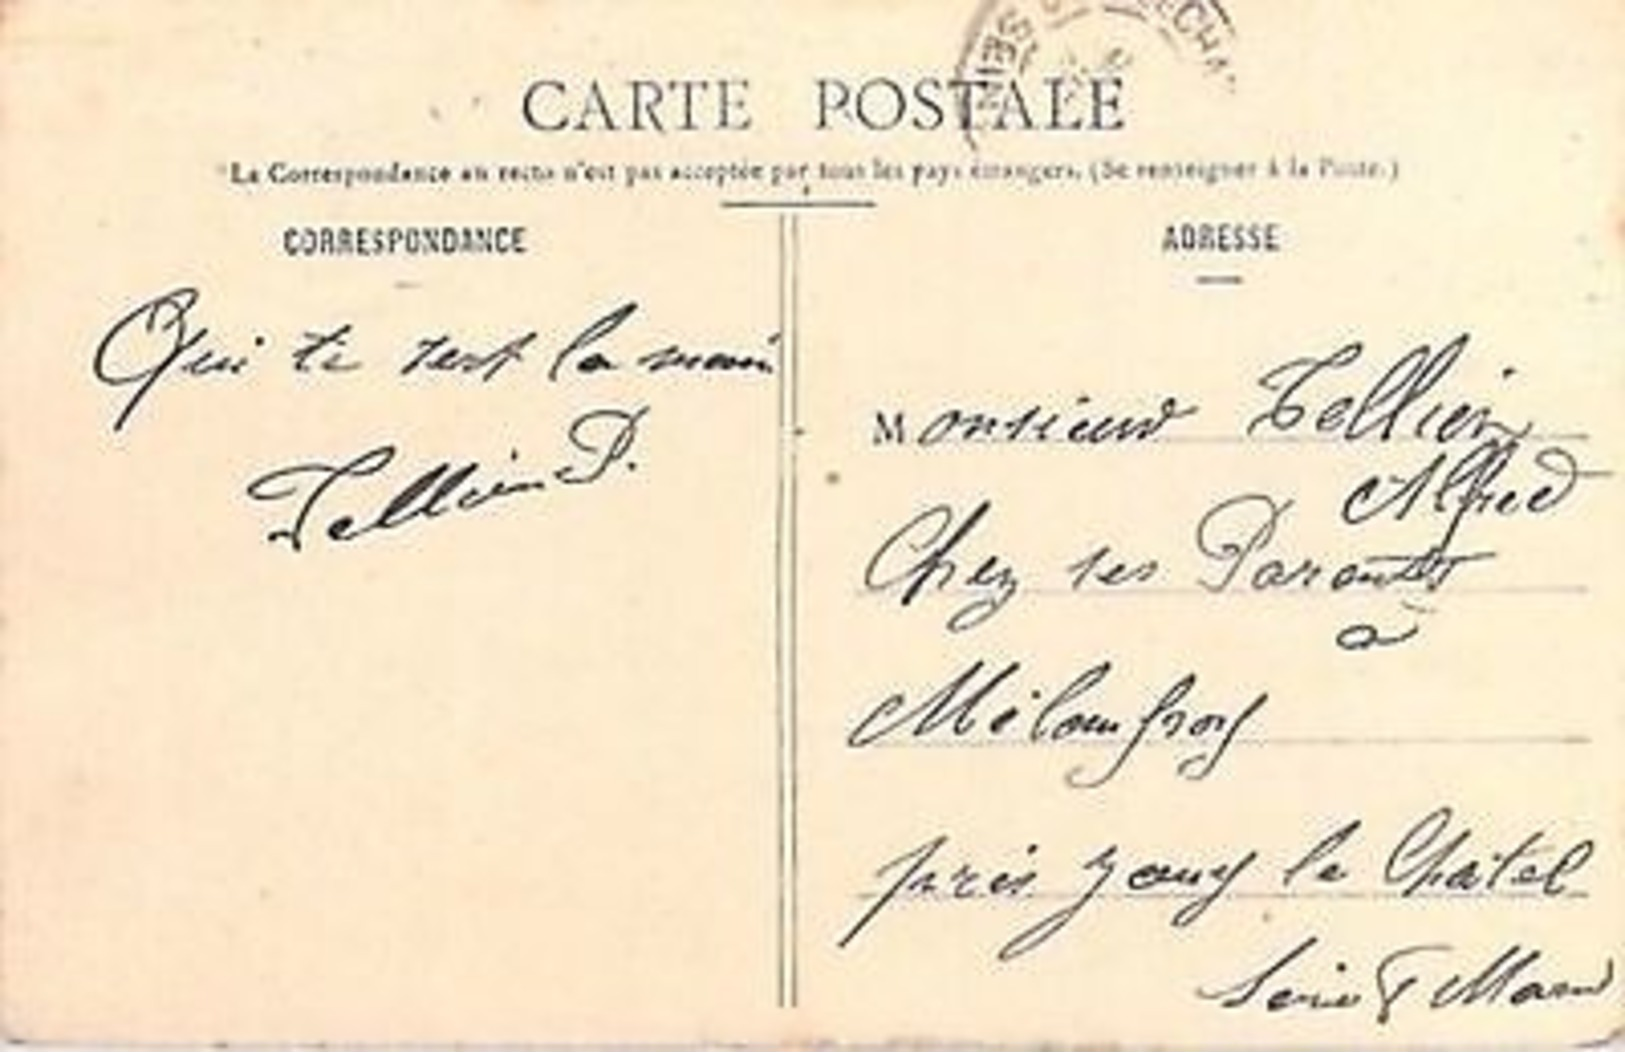 CARTE POSTALE
La Correspondance au recto n'est pas acceptée par tous les pays étrangers. (Se renseigner à la Poste.)
CORRESPONDANCE
ADRESSE
Qui te sert la main
Tellier P.
Monsieur Tellier
Alfred
Chez ses Parents
à
Mélenfroy
près Jouy le Châtel
Seine & Marne